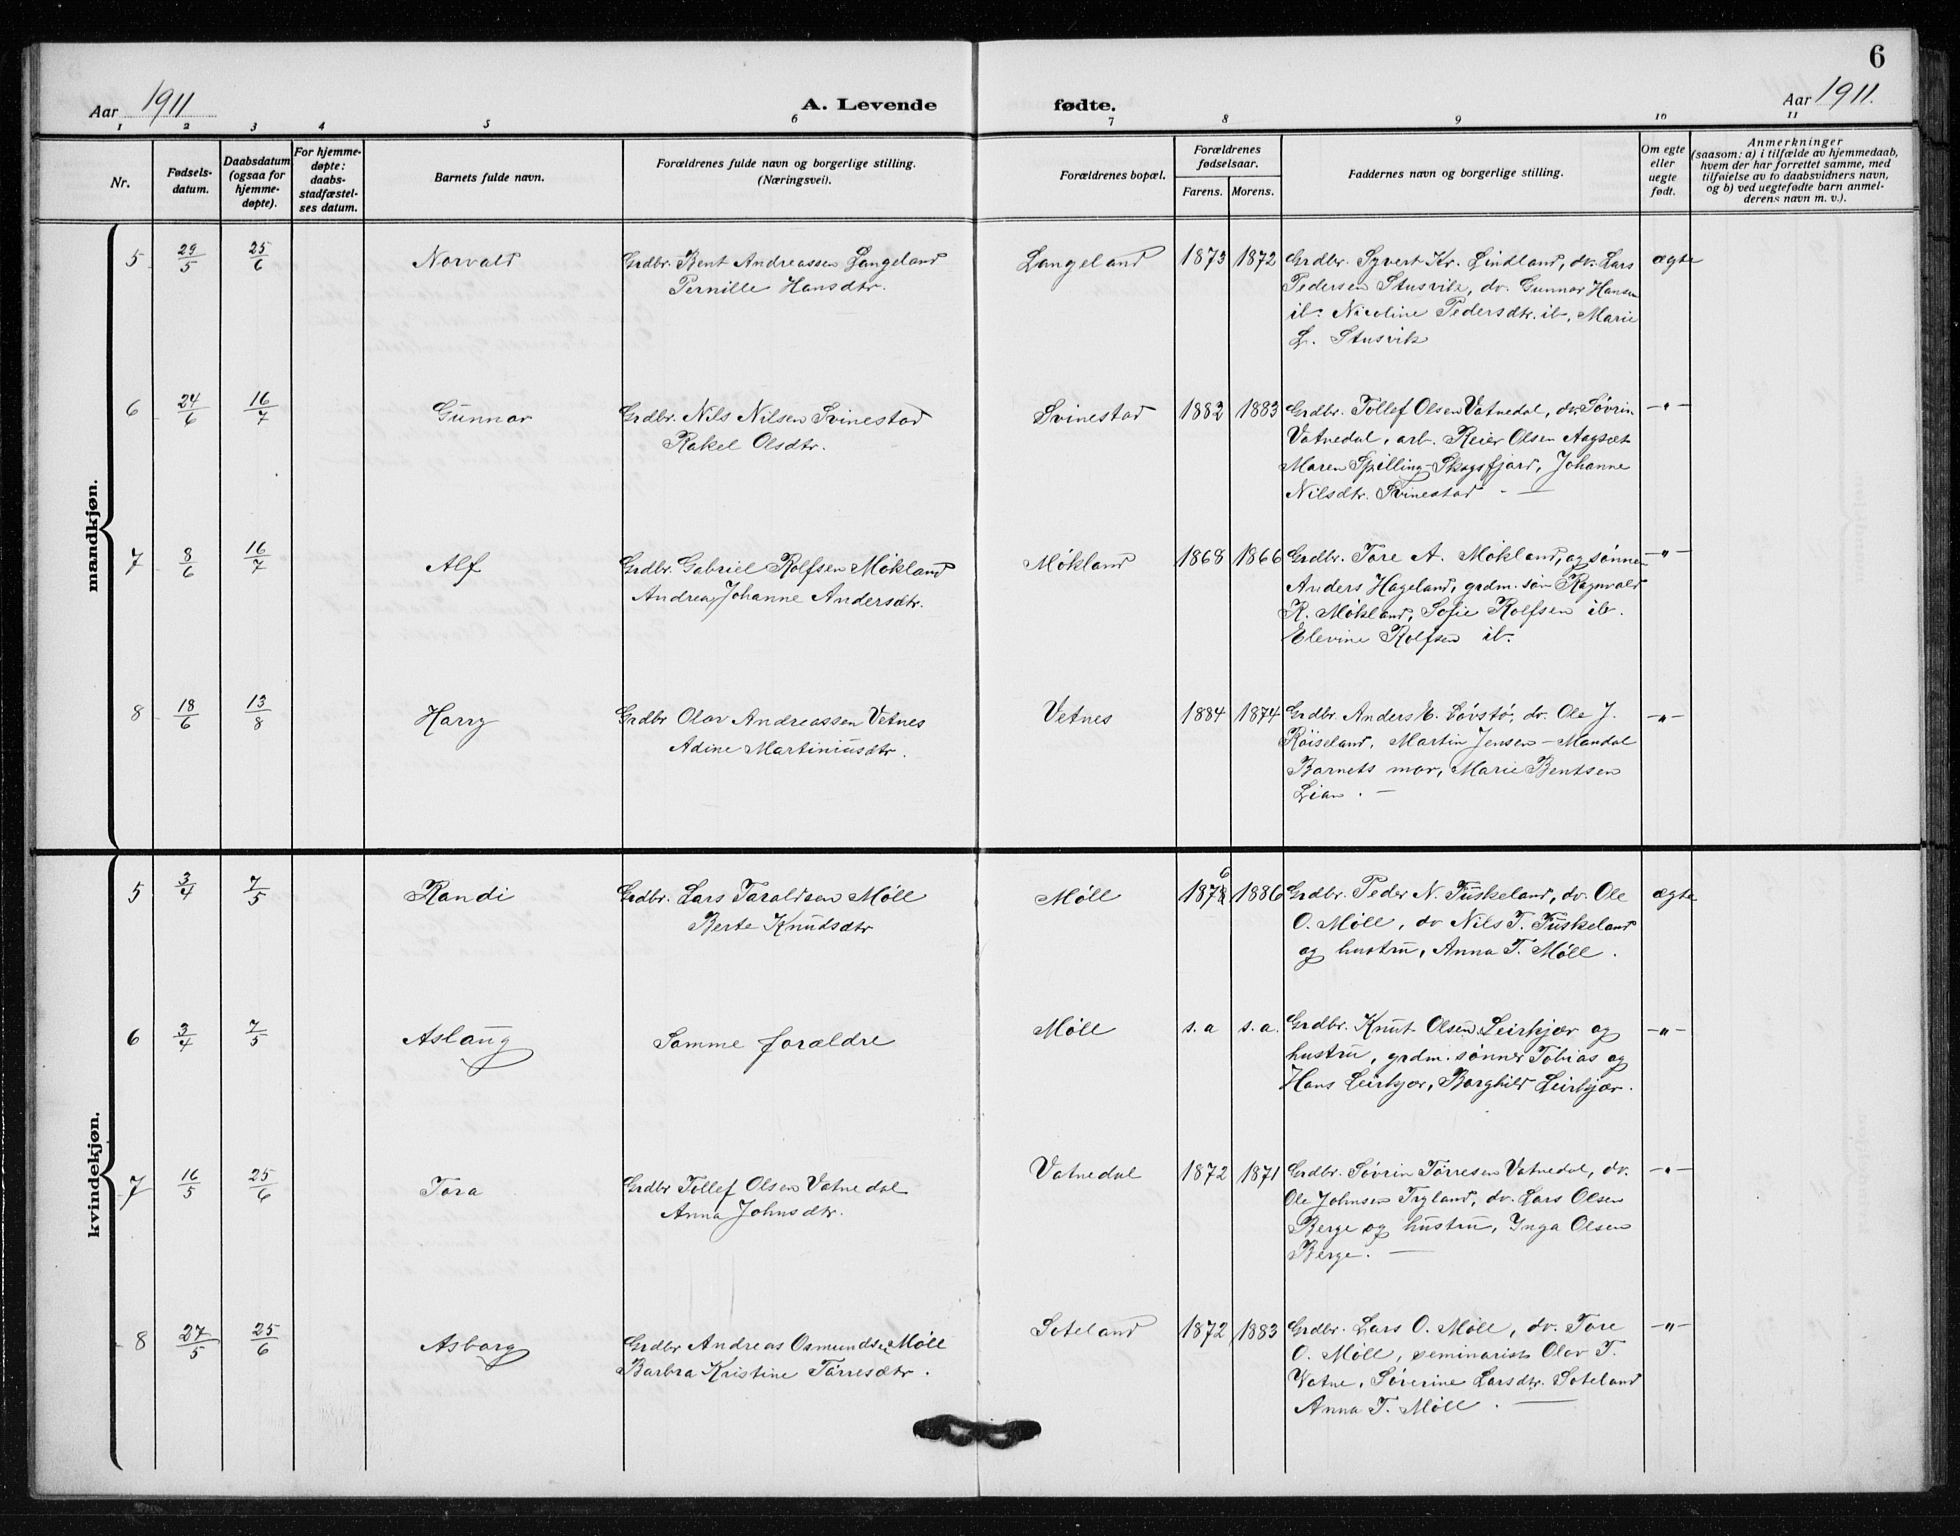 6
Aar 1911
A. Levende fødte.
Aar 1911.
1 2 3 4 5 6 7 8 9 10 11
Nr.
Fødsels-
datum.
Daabsdatum
(ogsaa for
hjemme-
døpte).
For hjemme-
døpte:
daabs-
stadfæstel-
ses datum.
Barnets fulde navn.
Forældrenes fulde navn og borgerlige stilling.
(Næringsvei).
Forældrenes bopæl.
Forældrenes
fødselsaar.
Farens. Morens.
Faddernes navn og borgerlige stilling.
Om egte
eller
uegte
født.
Anmerkninger
(saasom: a) i tilfælde av hjemmedaab,
hvem der har forrettet samme, med
tilføielse av to daabsvidners navn,
og b) ved uegtefødte barn anmel-
derens navn m. v.).
mandkjøn.
5 29/5 25/6 Norvald Grdbr. Bent Andreassen Langeland Langeland 1873 1872 Grdbr. Syvert Kr. Lindland, dv. Lars ægte
Pernille Hansdtr. Pedersen Stusvik, dv. Gunnar Hansen
ib. Nicoline Pedersdtr. ib, Marie
L. Stusvik
6 24/6 16/7 Gunnar Grdbr. Nils Nilsen Svinestad Svinestad 1882 1883 Grdbr. Tollef Olsen Vatnedal, dv. Søvrin -"-
Rakel Olsdtr. Vatnedal, arb. Reier Olsen Aagset
Maren Spilling-Skogsfjord, Johanne
Nilsdtr. Svinestad - —
7 8/6 16/7 Alf Grdbr. Gabriel Rolfsen Møkland Møkland 1868 1866 Grdbr. Tore A. Møkland, og sønnen -"-
Andrea Johanne Andersdtr. Anders Hageland, grdm. søn Ragnvald
R. Møkland, Sofie Rolfsen ib.
Elevine Rolfsen ib.
8 18/6 13/8 Harry Grdbr Olav Andreassen Vetnes Vetnes 1884 1874 Grdbr. Anders E. Løvstø, dv. Ole J. -"-
Adine Martiniusdtr. Røiseland, Martin Jensen - Mandal
Barnets mor, Marie Bentsen
Lian. -
kvindekjøn.
5 3/4 7/5 Randi Grdbr. Lars Taraldsen Møll Møll 1876 1886 Grdbr. Peder N. Fuskeland, dv. Ole ægte
Berte Knudsdtr O. Møll, dv Nils T. Fuskeland
og hustru, Anna T. Møll.
6 3/4 7/5 Aslaug Samme forældre Møll s.a s.a. Grdbr. Knut Olsen Leirkjær og -"-
hustru, grdm. sønner Tobias og
Hans Leirkjær, Borghild Leirkjær.
7 16/5 25/6 Tora Grdbr Tollef Olsen Vatnedal Vatnedal 1872 1871 Grdbr. Søvrin Tørresen Vatnedal, dv. -"-
Anna Johnsdtr. Ole Johnsen Tryland, dv. Lars Olsen
Berge og hustru, Inga Olsen
Berge. —
8 27/5 25/6 Asborg Grdbr Andreas Osmundsen Møll Soteland 1872 1883 Grdbr. Lars O. Møll, dv. Tore -"-
Barbra Kristine Tørresdtr. O. Møll, seminarist Olav T.
Vatne, Sørerine Larsdtr. Soteland
Anna T. Møll. —